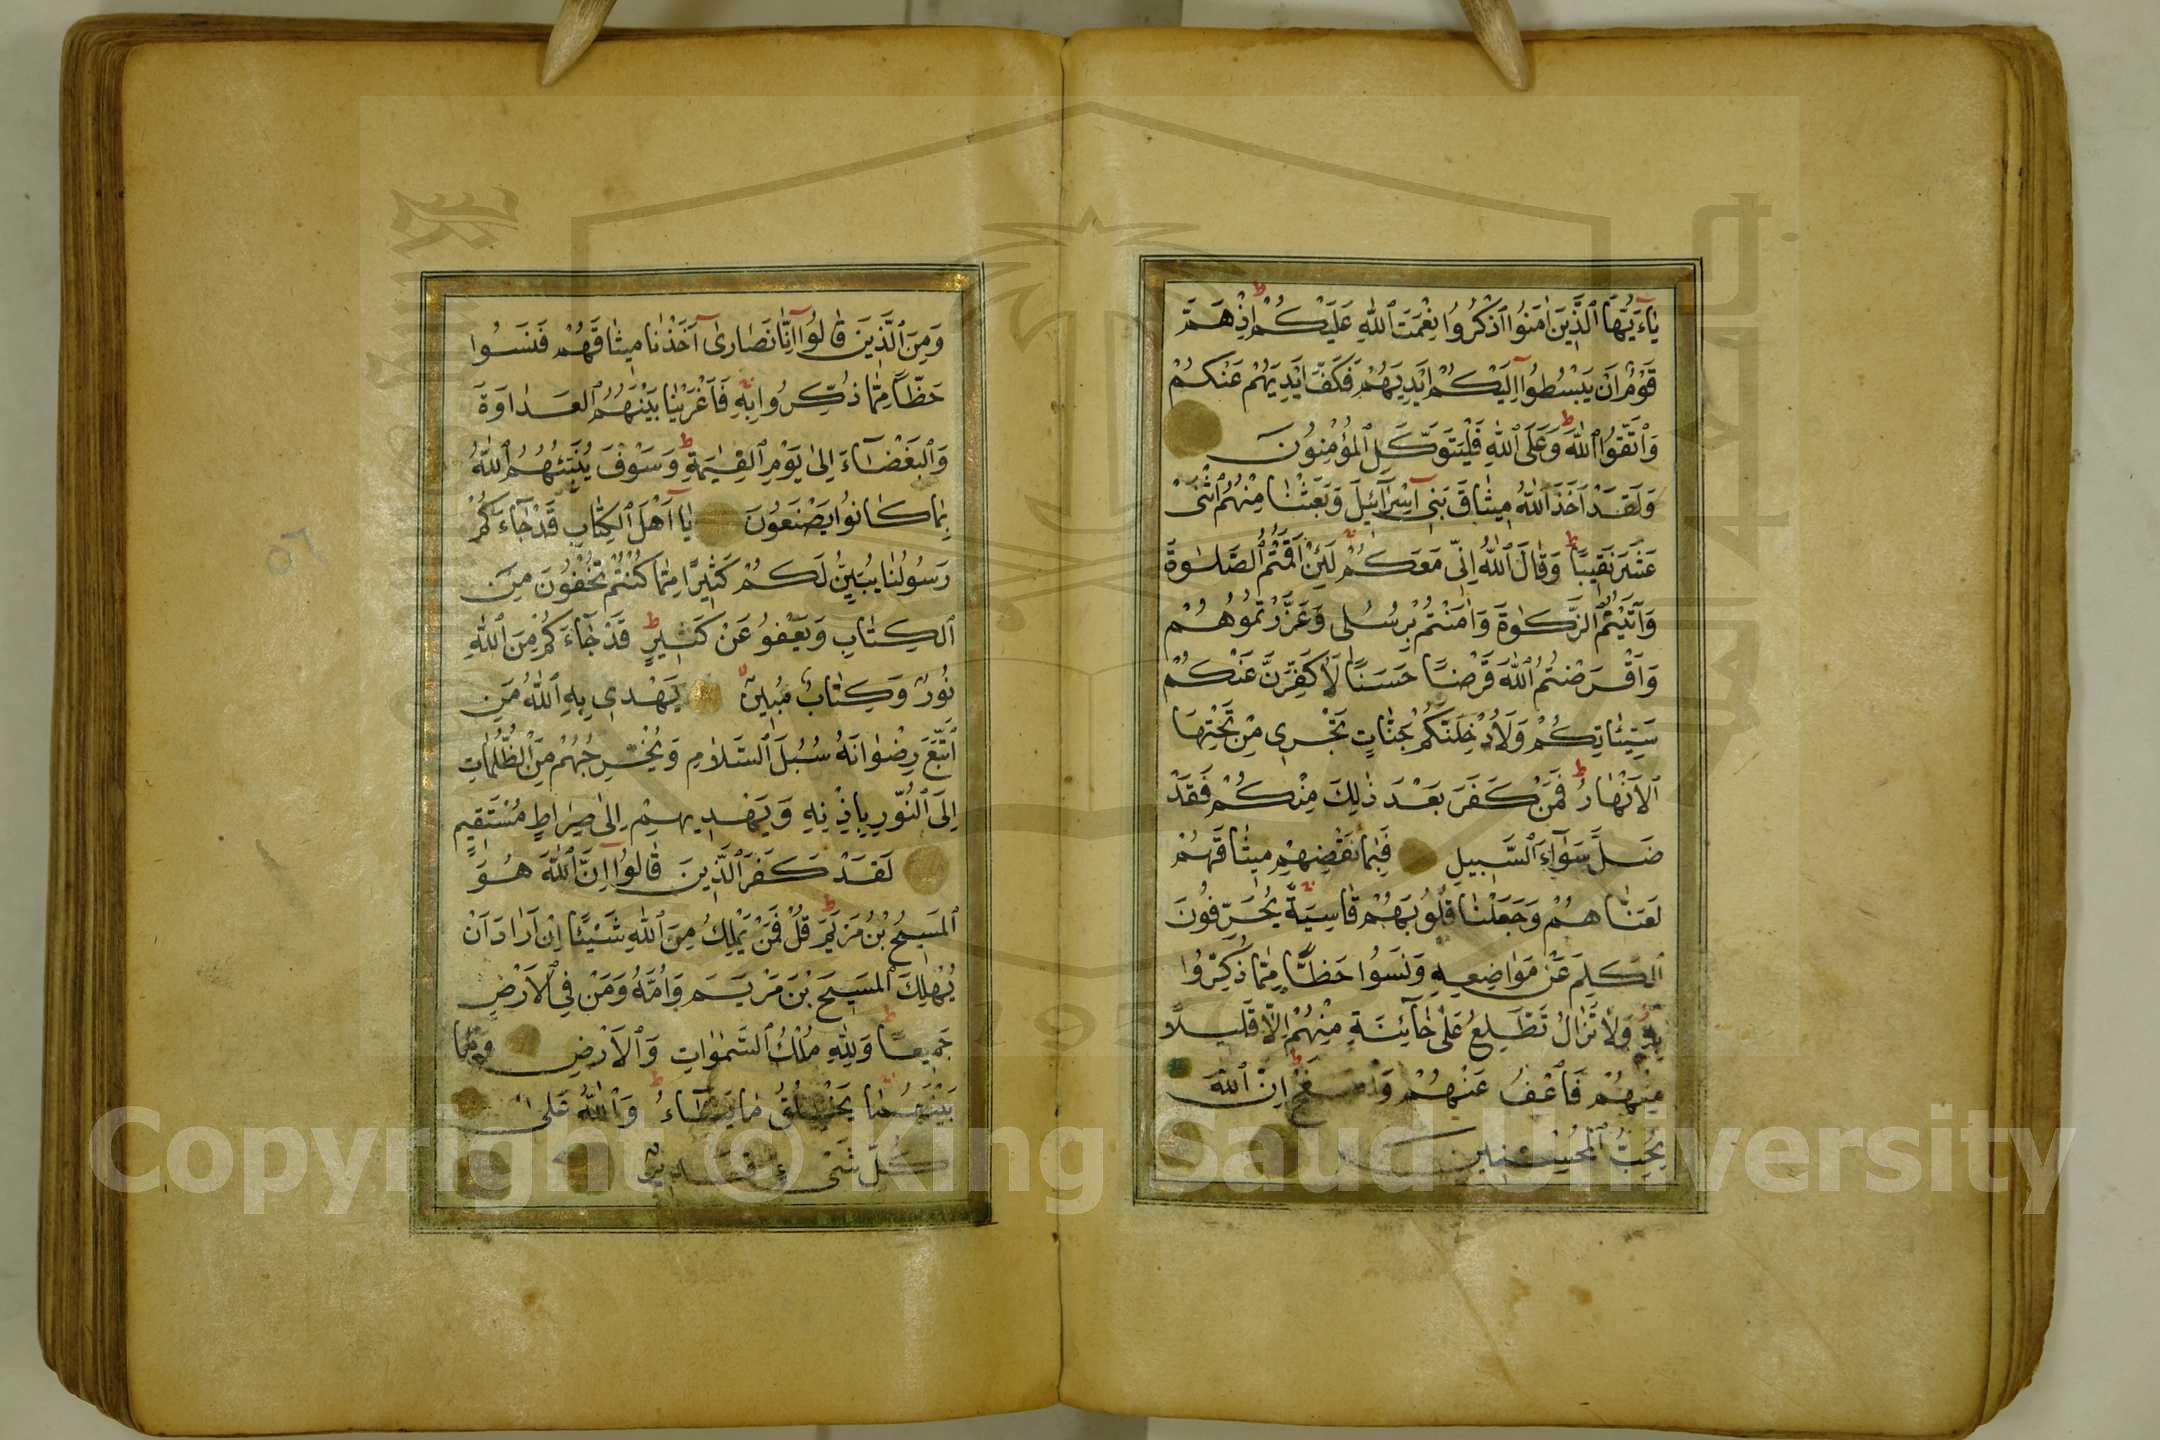 يَاءَيُّهَا ٱلَّذِينَ اٰمَنُوا ٱذْكُرُوا نِعْمَتَ ٱللّٰهِ عَلَيْكُمْ اِذْ هَمَّ
قَوْمٌ اَنْ يَبْسُطُوٓا اِلَيْكُمْ اَيْدِيَهُمْ فَكَفَّ اَيْدِيَهُمْ عَنْكُمْ
وَٱتَّقُوا ٱللّٰهَ ط وَعَلَى ٱللّٰهِ فَلْيَتَوَكَّلِ ٱلْمُؤْمِنُونَ
وَلَقَدْ اَخَذَ ٱللّٰهُ مِيثٰاقَ بَنِىٓ اِسْرَآئِيلَ وَبَعَثْنٰا مِنْهُمُ ٱثْنَىْ
عَشَرَ نَقِيبًا ط وَقٰالَ ٱللّٰهُ اِنِّى مَعَكُمْ لَئِنْ اَقَمْتُمُ ٱلصَّلٰوةَ
وَاٰتَيْتُمُ ٱلزَّكٰوةَ وَاٰمَنْتُمْ بِرُسُلِى وَعَزَّرْتُمُوهُمْ
وَاَقْرَضْتُمُ ٱللّٰهَ قَرْضًا حَسَنًا لَاُكَفِّرَنَّ عَنْكُمْ
سَيِّئٰاتِكُمْ وَلَاُدْخِلَنَّكُمْ جَنّٰاتٍ تَجْرِى مِنْ تَحْتِهَا
ٱلْاَنْهٰارُ ط فَمَنْ كَفَرَ بَعْدَ ذٰلِكَ مِنْكُمْ فَقَدْ
ضَلَّ سَوَآءَ ٱلسَّبِيلِ فَبِمٰا نَقْضِهِمْ مِيثٰاقَهُمْ
لَعَنّٰاهُمْ وَجَعَلْنٰا قُلُوبَهُمْ قٰاسِيَةً يُحَرِّفُونَ
ٱلْكَلِمَ عَنْ مَوَاضِعِهِ وَنَسُوا حَظًّا مِمّٰا ذُكِّرُوا
بِهِ وَلٰا تَزٰالُ تَطَّلِعُ عَلىٰ خٰآئِنَةٍ مِنْهُمْ اِلّٰا قَلِيلًا
مِنْهُمْ فَٱعْفُ عَنْهُمْ وَٱصْفَحْ ط اِنَّ ٱللّٰهَ
يُحِبُّ ٱلْمُحْسِنِينَ
وَمِنَ ٱلَّذِينَ قٰالُوٓا اِنّٰا نَصَارىٰٓ اَخَذْنٰا مِيثٰاقَهُمْ فَنَسُوا
حَظًّا مِمّٰا ذُكِّرُوا بِهِ فَاَغْرَيْنٰا بَيْنَهُمُ ٱلْعَدٰاوَةَ
وَٱلْبَغْضٰآءَ اِلىٰ يَوْمِ ٱلْقِيٰمَةِ ط وَسَوْفَ يُنَبِّئُهُمُ ٱللّٰهُ
بِمٰا كَانُوا يَصْنَعُونَ يٰآ اَهْلَ ٱلْكِتٰابِ قَدْ جٰآءَكُمْ
رَسُولُنٰا يُبَيِّنُ لَكُمْ كَثِيرًا مِمّٰا كُنْتُمْ تُخْفُونَ مِنَ
ٱلْكِتٰابِ وَيَعْفُو عَنْ كَثِيرٍ ط قَدْ جٰآءَكُمْ مِنَ ٱللّٰهِ
نُورٌ وَكِتٰابٌ مُبِينٌ يَهْدِى بِهِ ٱللّٰهُ مَنِ
ٱتَّبَعَ رِضْوٰانَهُ سُبُلَ ٱلسَّلٰامِ وَيُخْرِجُهُمْ مِنَ ٱلظُّلُمٰاتِ
اِلَى ٱلنُّورِ بِاِذْنِهِ وَيَهْدِيهِمْ اِلىٰ صِرٰاطٍ مُسْتَقِيمٍ
لَقَدْ كَفَرَ ٱلَّذِينَ قٰالُوٓا اِنَّ ٱللّٰهَ هُوَ
ٱلْمَسِيحُ بْنُ مَرْيَمَ ط قُلْ فَمَنْ يَمْلِكُ مِنَ ٱللّٰهِ شَيْئًا اِنْ اَرٰادَ اَنْ
يُهْلِكَ ٱلْمَسِيحَ بْنَ مَرْيَمَ وَاُمَّهُ وَمَنْ فِي ٱلْاَرْضِ
جَمِيعًا ط وَلِلّٰهِ مُلْكُ ٱلسَّمٰوٰاتِ وَٱلْاَرْضِ وَمٰا
بَيْنَهُمٰا يَخْلُقُ مٰا يَشٰآءُ ط وَٱللّٰهُ عَلىٰ
كُلِّ شَىْءٍ قَدِيرٌ
٥٦
Copyright © King Saud University
1957